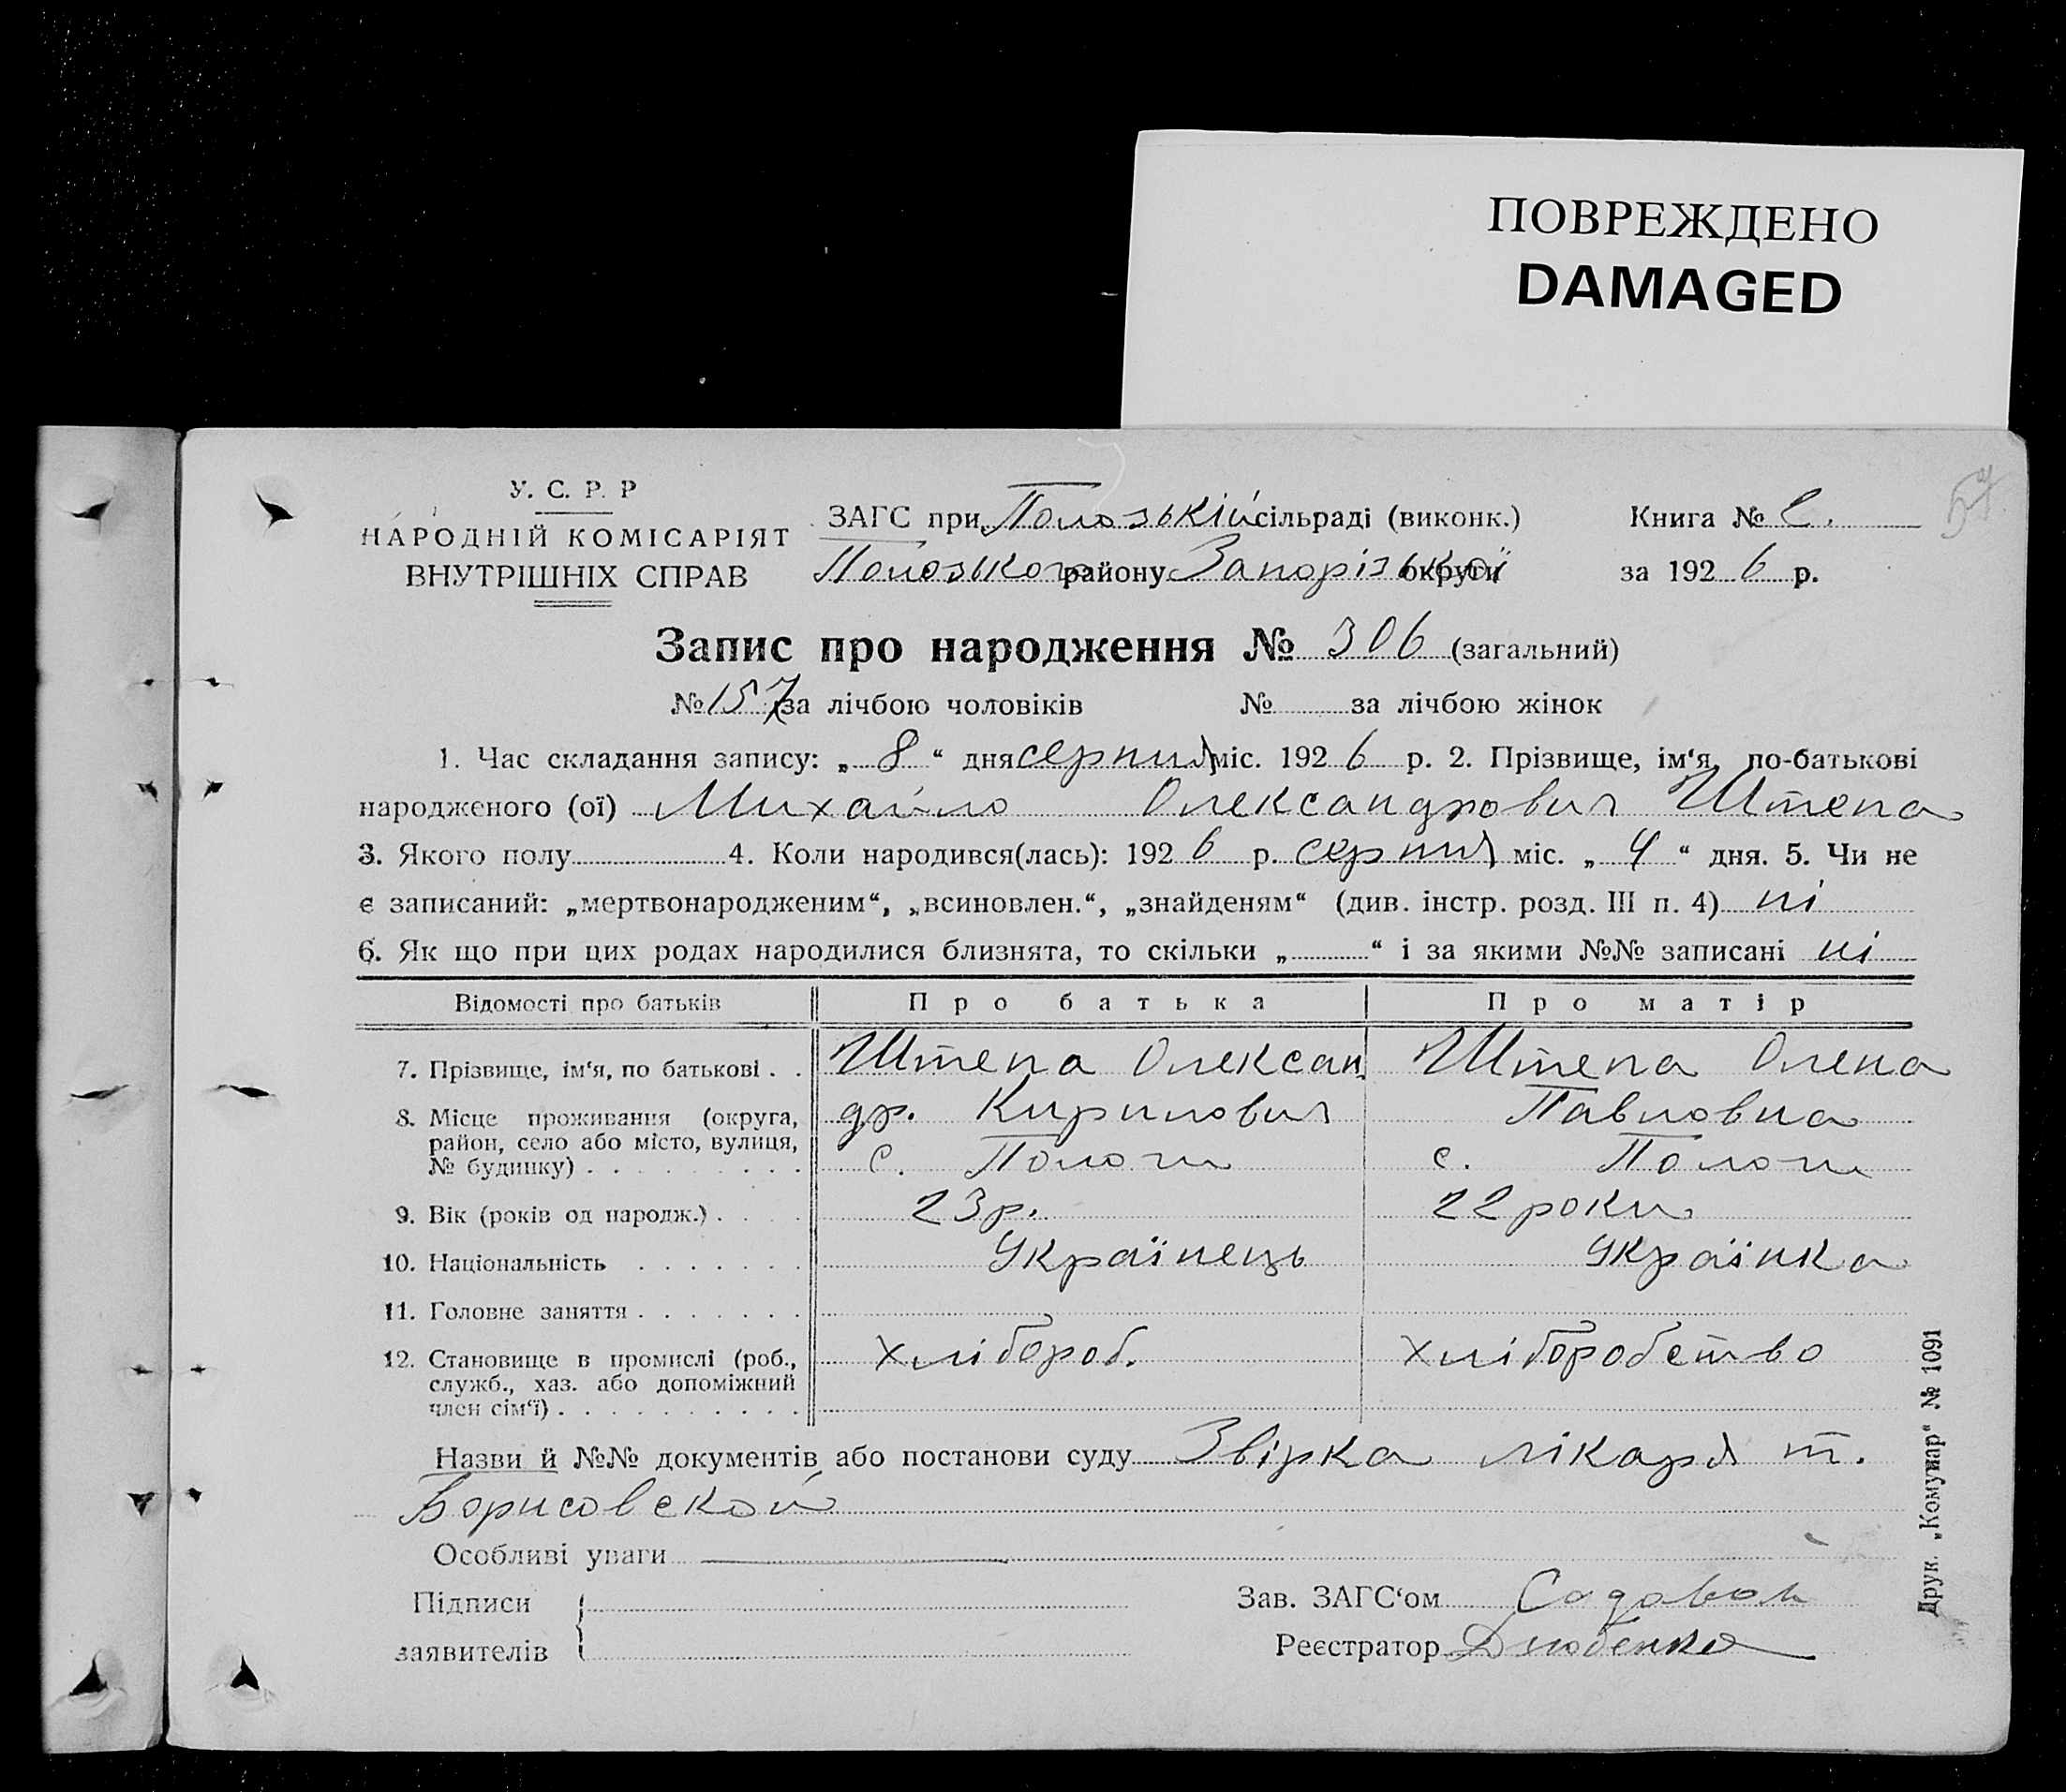 ПОВРЕЖДЕНО
DAMAGED
У. С. Р. Р
НАРОДНІЙ КОМІСАРІЯТ
ВНУТРІШНІХ СПРАВ
ЗАГС при Пологській сільраді (виконк.)
Пологського району Запорізької округи
Книга №
за 1926 р.
Запис про народження № 306 (загальний)
№ 157 за лічбою чоловіків № за лічбою жінок
1. Час складання запису: „8“ дня серпня міс. 1926 р. 2. Прізвище, ім‘я, по-батькові
народженого (ої) Михайло Олександрович Штепа
3. Якого полу 4. Коли народився(лась): 1926 р. серпня міс. „4“ дня. 5. Чи не
є записаний: „мертвонародженим“, „всиновлен.“, „знайденям“ (див. інстр. розд. III п. 4) ні
6. Як що при цих родах народилися близнята, то скільки „ “ і за якими №№ записані ні
Відомості про батьків Про батька Про матір
7. Прізвище, ім‘я, по батькові . . Штепа Олексан Штепа Олена
др. Кирилович Павловна
8. Місце проживання (округа,
район, село або місто, вулиця,
№ будинку) . . . . . . . . . с. Пологи с. Пологи
9. Вік (років од народж.) . . . . 23р. 22 роки
10. Національність . . . . . . . Українець Українка
11. Головне заняття . . . . . . .
12. Становище в промислі (роб., хлібороб. хліборобство
служб., хаз. або допоміжний
член сім‘ї) . . . . . . . . . .
Назви й №№ документів або постанови суду Звірка лікаря т.
Борисовской
Особливі уваги
Підписи
заявителів
Зав. ЗАГС‘ом
Реєстратор
Друк. „Комунар“ № 1091